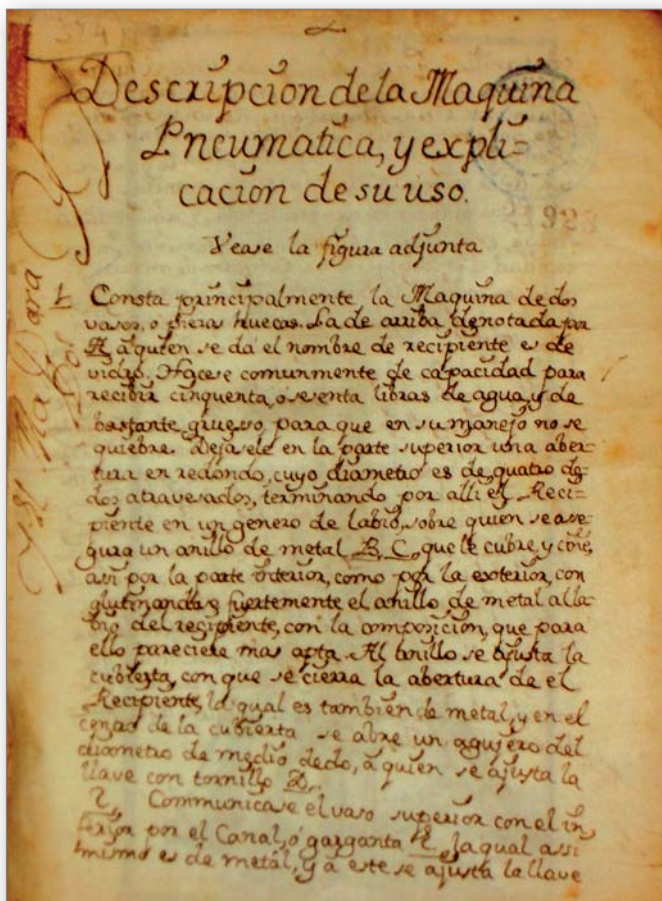 Descripcion de la Maquina
Pneumatica, y expli=
cacion de su uso.
Vease la figura adjunta
1. Consta principalmente la Maquina de dos
vasos, o piezas huecas. La de arriba, denotada por
A, a quien se dá el nombre de recipiente es de
vidrio. Hacese comunmente de capacidad para
recibir cinquenta, o sesenta libras de agua, y de
bastante grueso, para que en su manejo no se
quiebre. Dejasele en la parte superior una aber=
tura en redondo, cuyo diametro es de quatro de=
dos atravesados, terminando por alli el Reci=
piente en un genero de labio, sobre quien se ase=
gura un anillo de metal B, C, que le cubre, y
assi por la parte interior, como por la exterior, con
glutinandose fuertemente el anillo de metal al la=
bio del recipiente, con la composicion, que para
ello pareciere mas apta. Al anillo se ajusta la
cubierta, con que se cierra la abertura de el
Recipiente, la qual es tambien de metal, y en el
de la cubierta se abre un agujero del
diametro de medio dedo, á quien se ajusta la
llave con tornillo D.
2. Communicase el vaso superior con el in
ferior por el Canal, ó garganta la qual assi
mismo es de metal, y á este se ajusta la llave